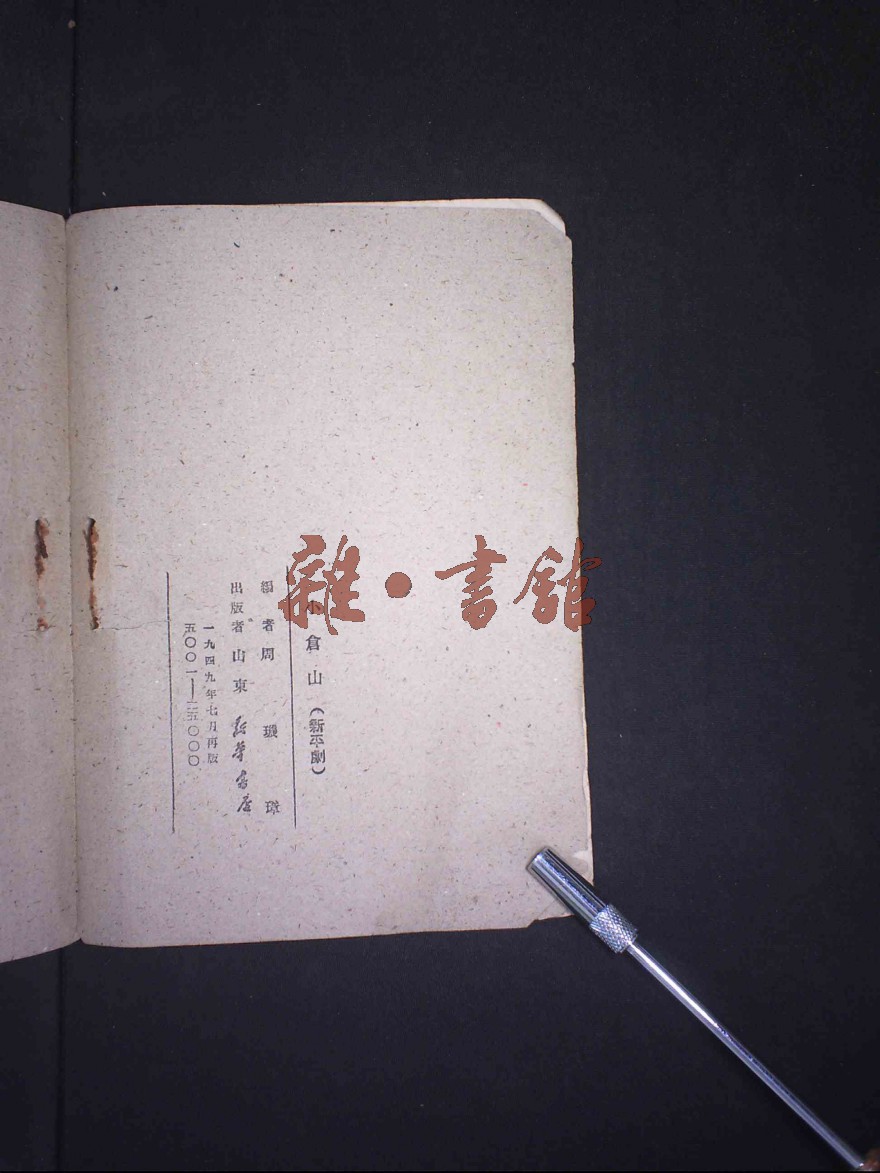 雜·書館
小倉山（新平劇）
編者周璣璋
出版者山東新華書店
一九四九年七月再版
五〇〇一——一五〇〇〇